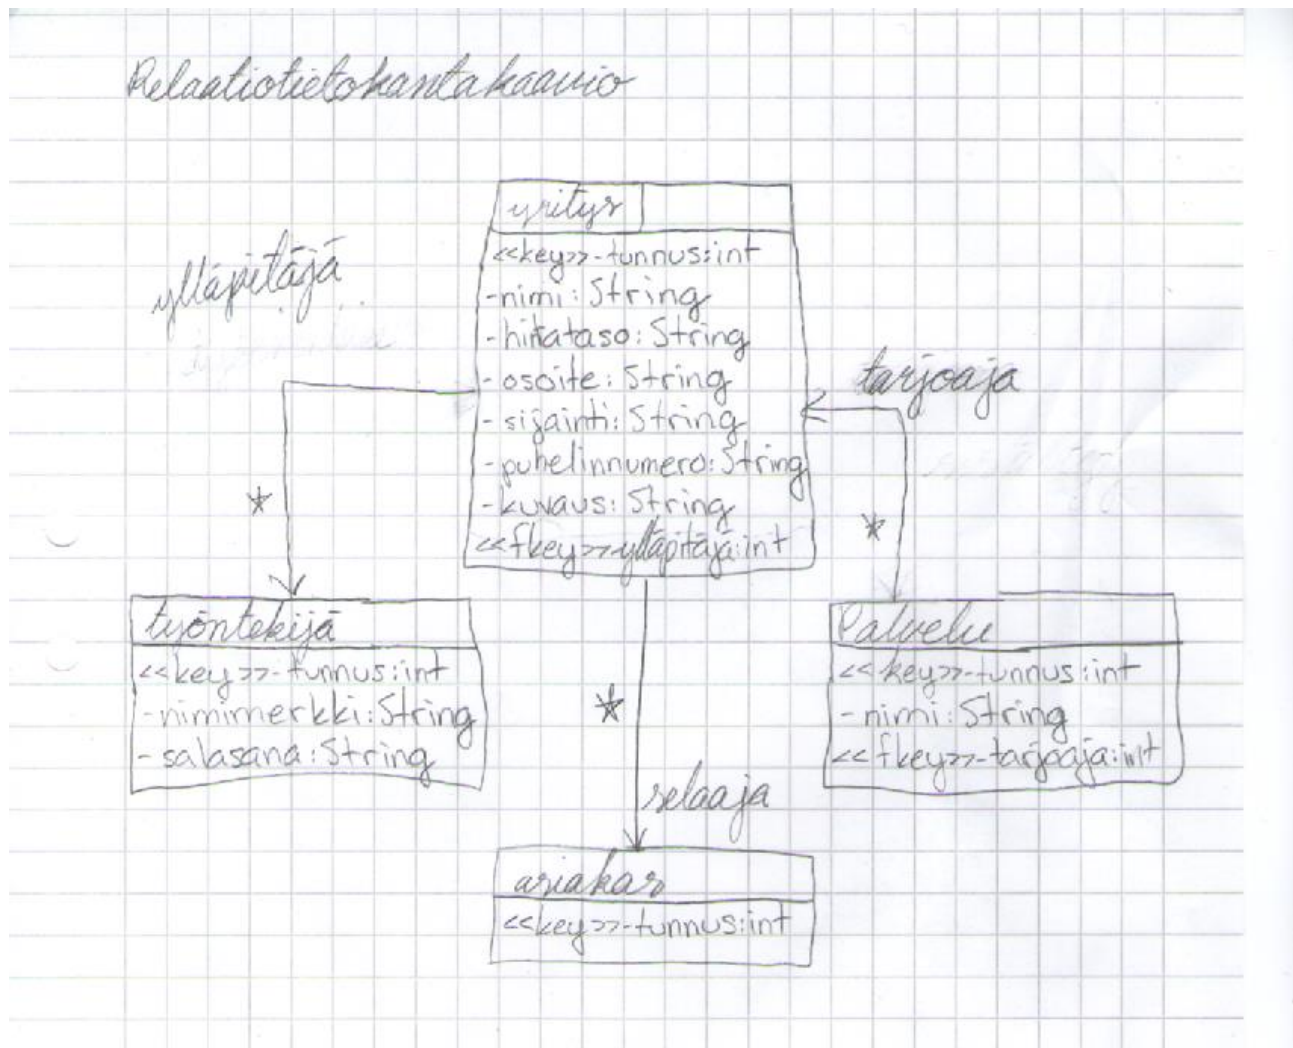 Relaatiotietokantakaavio
yritys
<<key>>-tunnus:int
-nimi:String
-hintataso:String
-osoite:String
-sijainti:String
-puhelinnumero:String
-kuvaus:String
<<fkey>>-ylläpitäjä:int
ylläpitäjä
*
tarjoaja
*
työntekijä
<<key>>-tunnus:int
-nimimerkki:String
-salasana:String
Palvelu
<<key>>-tunnus:int
-nimi:String
<<fkey>>-tarjoaja:int
*
selaaja
asiakas
<<key>>-tunnus:int